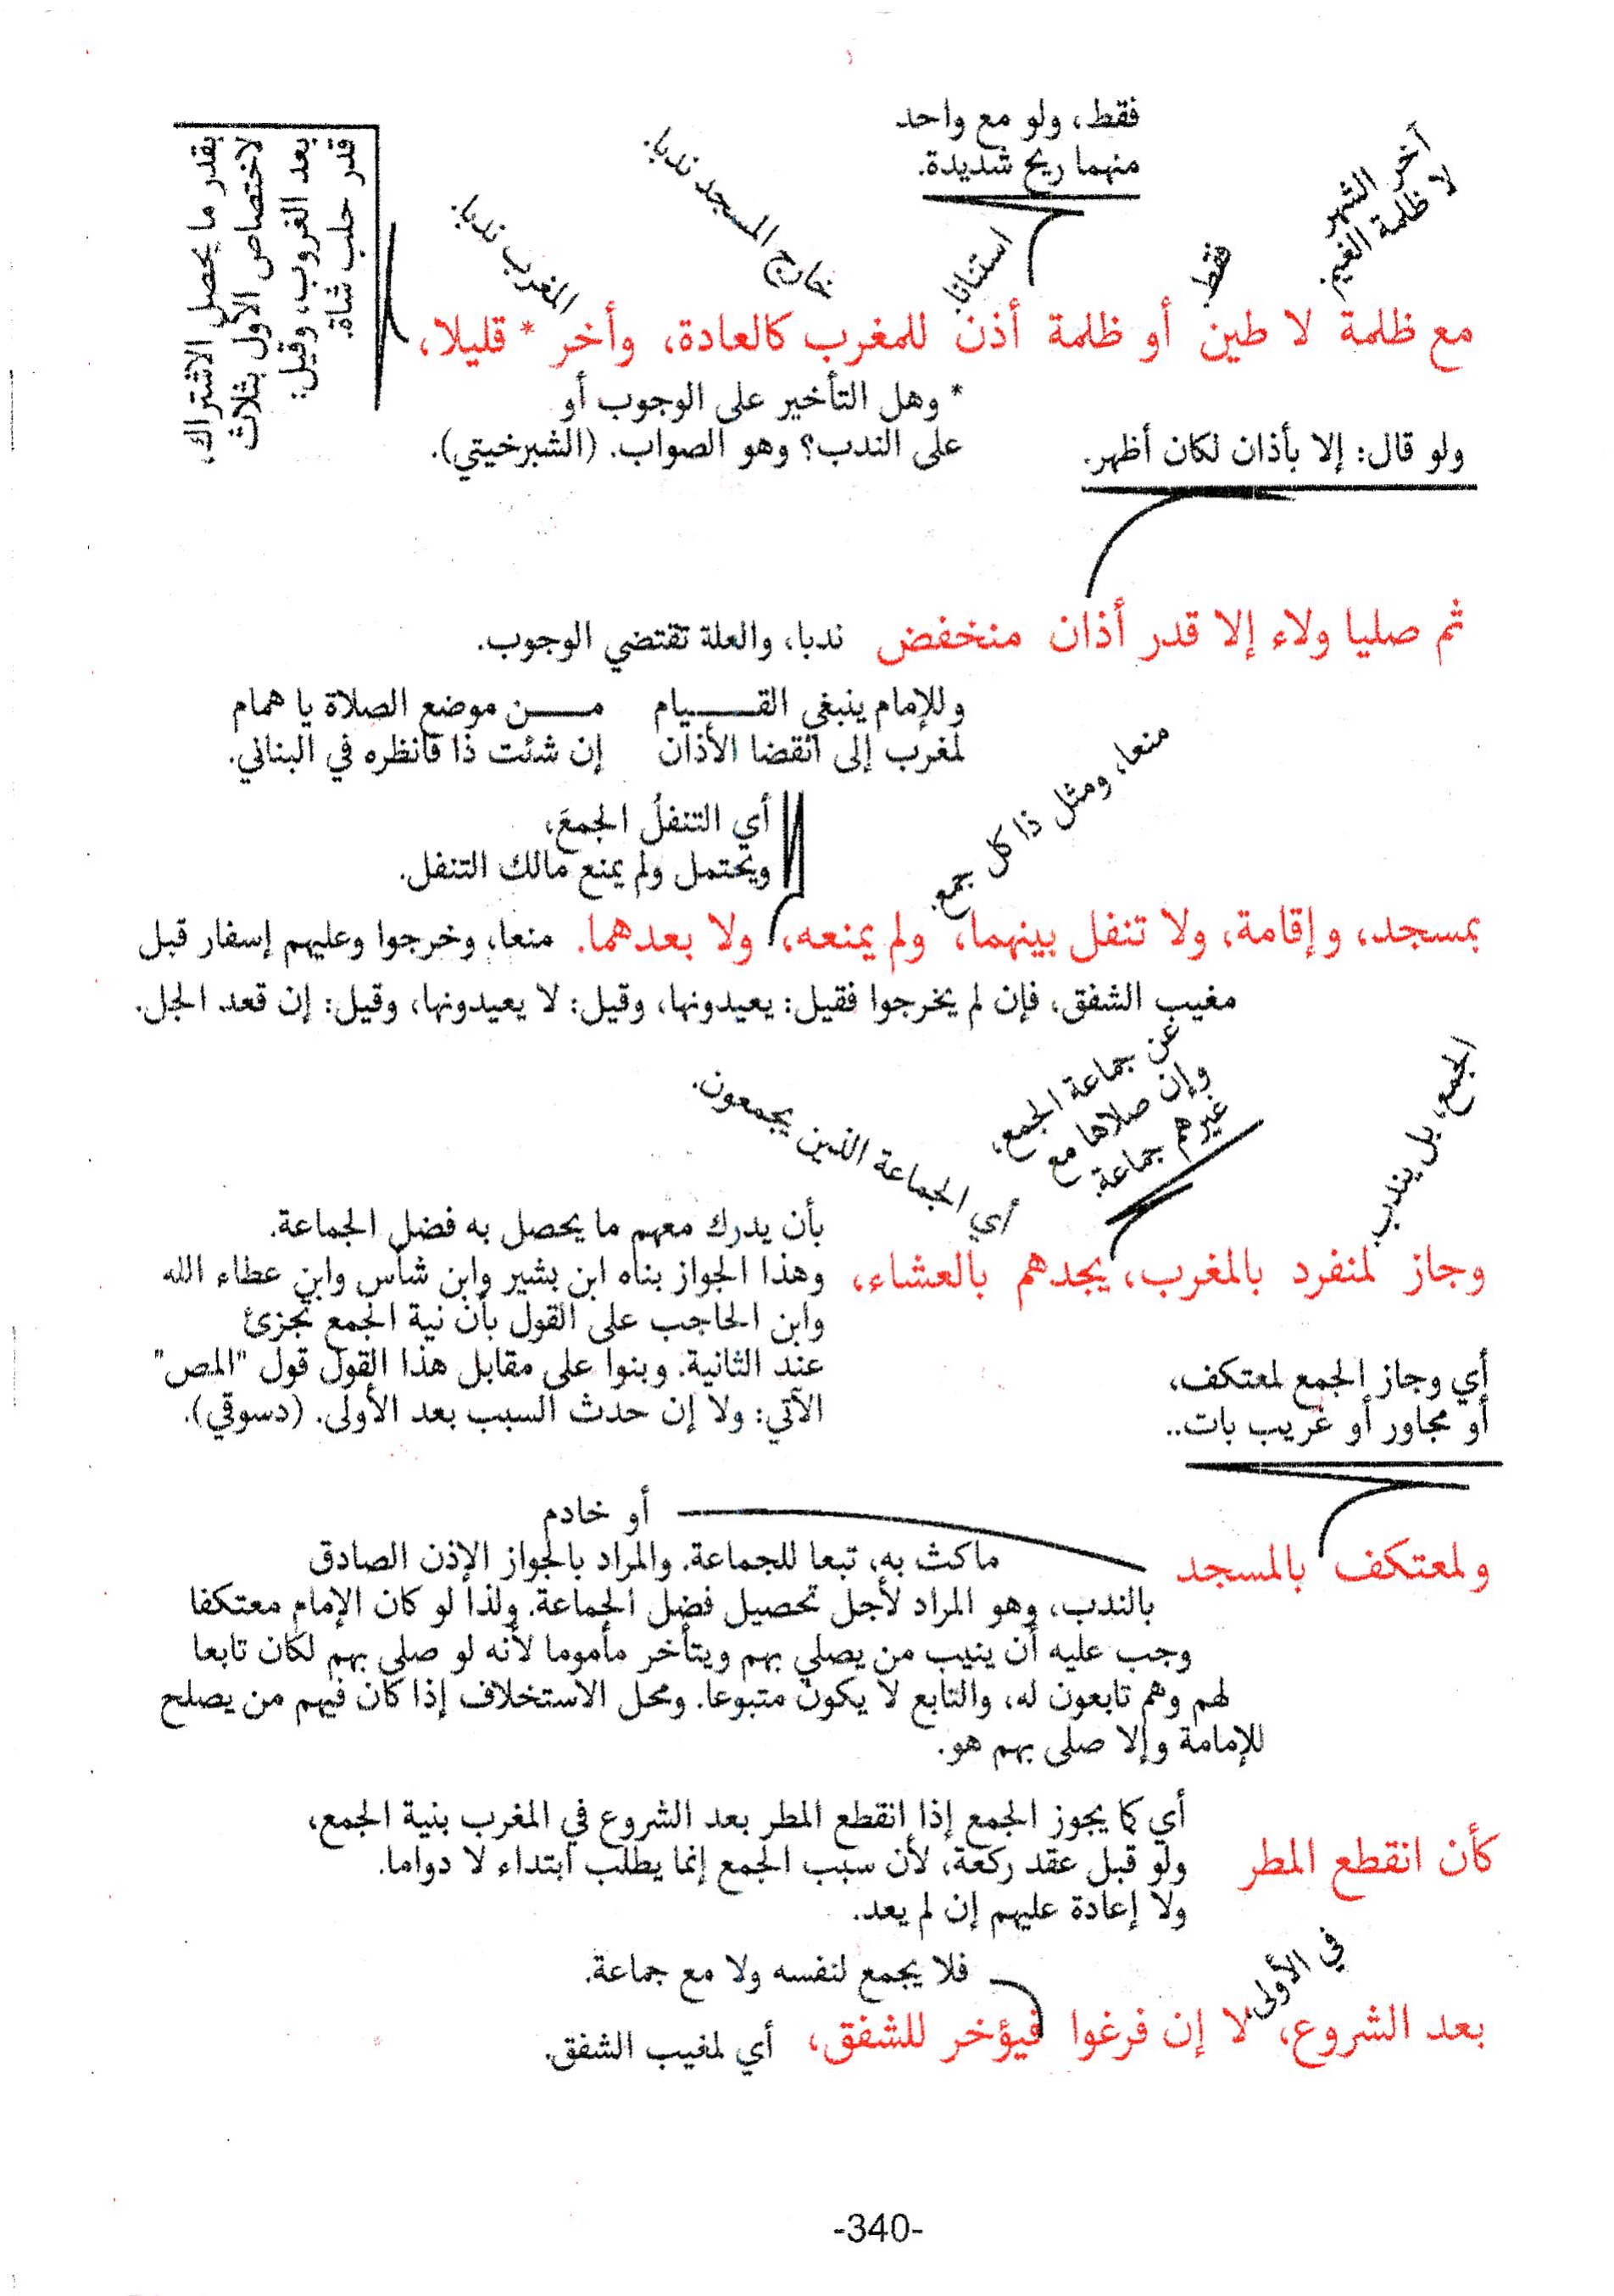 فقط، ولو مع واحد
منهما ريح شديدة.
آخر الشهر
لا ظلمة الغيم
فقط.
استنانا
خارج المسجد ندبا.
المغرب ندبا.
بقدر ما يحصل الاشتراك،
لاختصاص الأول بثلاث
بعد الغروب، وقيل:
قدر حلب شاة.
مع ظلمة لا طين أو ظلمة أذن للمغرب كالعادة، وأخر * قليلا،
* وهل التأخير على الوجوب أو
على الندب؟ وهو الصواب. (الشبرخيتي).
ولو قال: إلا بأذان لكان أظهر.
ثم صليا ولاء إلا قدر أذان منخفض ندبا، والعلة تقتضي الوجوب.
وللإمام ينبغي القـــــيام مـــــن موضع الصلاة يا همام
لمغرب إلى انقضا الأذان إن شئت ذا فانظره في البناني.
منعا، ومثل ذا كل جمع.
أي التنفلُ الجمعَ،
ويحتمل ولم يمنع مالك التنفل.
بمسجد، وإقامة، ولا تنفل بينهما، ولم يمنعه، ولا بعدهما. منعا، وخرجوا وعليهم إسفار قبل
مغيب الشفق، فإن لم يخرجوا فقيل: يعيدونها، وقيل: لا يعيدونها، وقيل: إن قعد الجل.
الجمع، بل يندب
عن جماعة الجمع،
وإن صلاها مع
غيرهم جماعة.
أي الجماعة الذين يجمعون.
وجاز لمنفرد بالمغرب، يجدهم بالعشاء،
بأن يدرك معهم ما يحصل به فضل الجماعة.
وهذا الجواز بناه ابن بشير وابن شأس وابن عطاء الله
وابن الحاجب على القول بأن نية الجمع تجزئ
عند الثانية. وبنوا على مقابل هذا القول قول "المص"
الآتي: ولا إن حدث السبب بعد الأولى. (دسوقي).
أي وجاز الجمع لمعتكف،
أو مجاور أو غريب بات..
أو خادم
ولمعتكف بالمسجد
ماكث به، تبعا للجماعة. والمراد بالجواز الإذن الصادق
بالندب، وهو المراد لأجل تحصيل فضل الجماعة. ولذا لو كان الإمام معتكفا
وجب عليه أن ينيب من يصلي بهم ويتأخر مأموما لأنه لو صلى بهم لكان تابعا
لهم وهم تابعون له، والتابع لا يكون متبوعا. ومحل الاستخلاف إذا كان فيهم من يصلح
للإمامة وإلا صلى بهم هو.
كأن انقطع المطر
أي كما يجوز الجمع إذا انقطع المطر بعد الشروع في المغرب بنية الجمع،
ولو قبل عقد ركعة، لأن سبب الجمع إنما يطلب ابتداء لا دواما.
ولا إعادة عليهم إن لم يعد.
في الأولى.
فلا يجمع لنفسه ولا مع جماعة.
بعد الشروع، لا إن فرغوا فيؤخر للشفق، أي لمغيب الشفق.
-340-